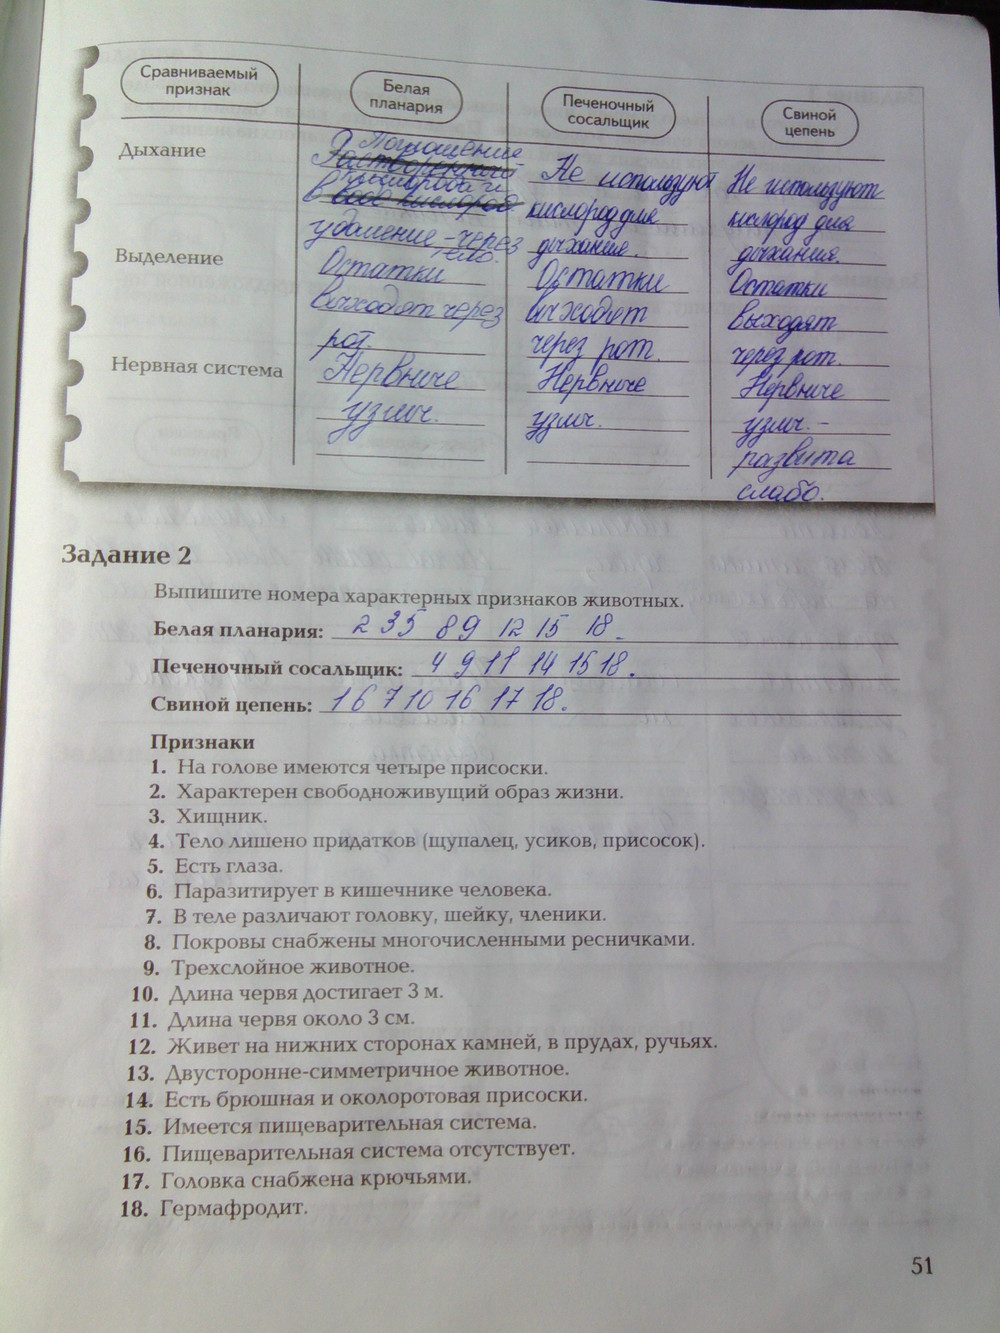 Сравниваемый признак
Белая планария
Печеночный сосальщик
Свиной цепень
Дыхание
Поглощение
Растворенный
кислорода и
в воде кислород
удаление - через
тело.
Не используют
кислород для
дыхания.
Не используют
кислород для
дыхания.
Выделение
Остатки
выходят через
рот.
Остатки
выходят
через рот.
Остатки
выходят
через рот.
Нервная система
Нервные
узлы.
Нервные
узлы.
Нервные
узлы. -
развита
слабо.
Задание 2
Выпишите номера характерных признаков животных.
Белая планария: 2 3 5 8 9 12 15 18.
Печеночный сосальщик: 4 9 11 14 15 18.
Свиной цепень: 1 6 7 10 16 17 18.
Признаки
1. На голове имеются четыре присоски.
2. Характерен свободноживущий образ жизни.
3. Хищник.
4. Тело лишено придатков (щупалец, усиков, присосок).
5. Есть глаза.
6. Паразитирует в кишечнике человека.
7. В теле различают головку, шейку, членики.
8. Покровы снабжены многочисленными ресничками.
9. Трехслойное животное.
10. Длина червя достигает 3 м.
11. Длина червя около 3 см.
12. Живет на нижних сторонах камней, в прудах, ручьях.
13. Двусторонне-симметричное животное.
14. Есть брюшная и околоротовая присоски.
15. Имеется пищеварительная система.
16. Пищеварительная система отсутствует.
17. Головка снабжена крючьями.
18. Гермафродит.
51